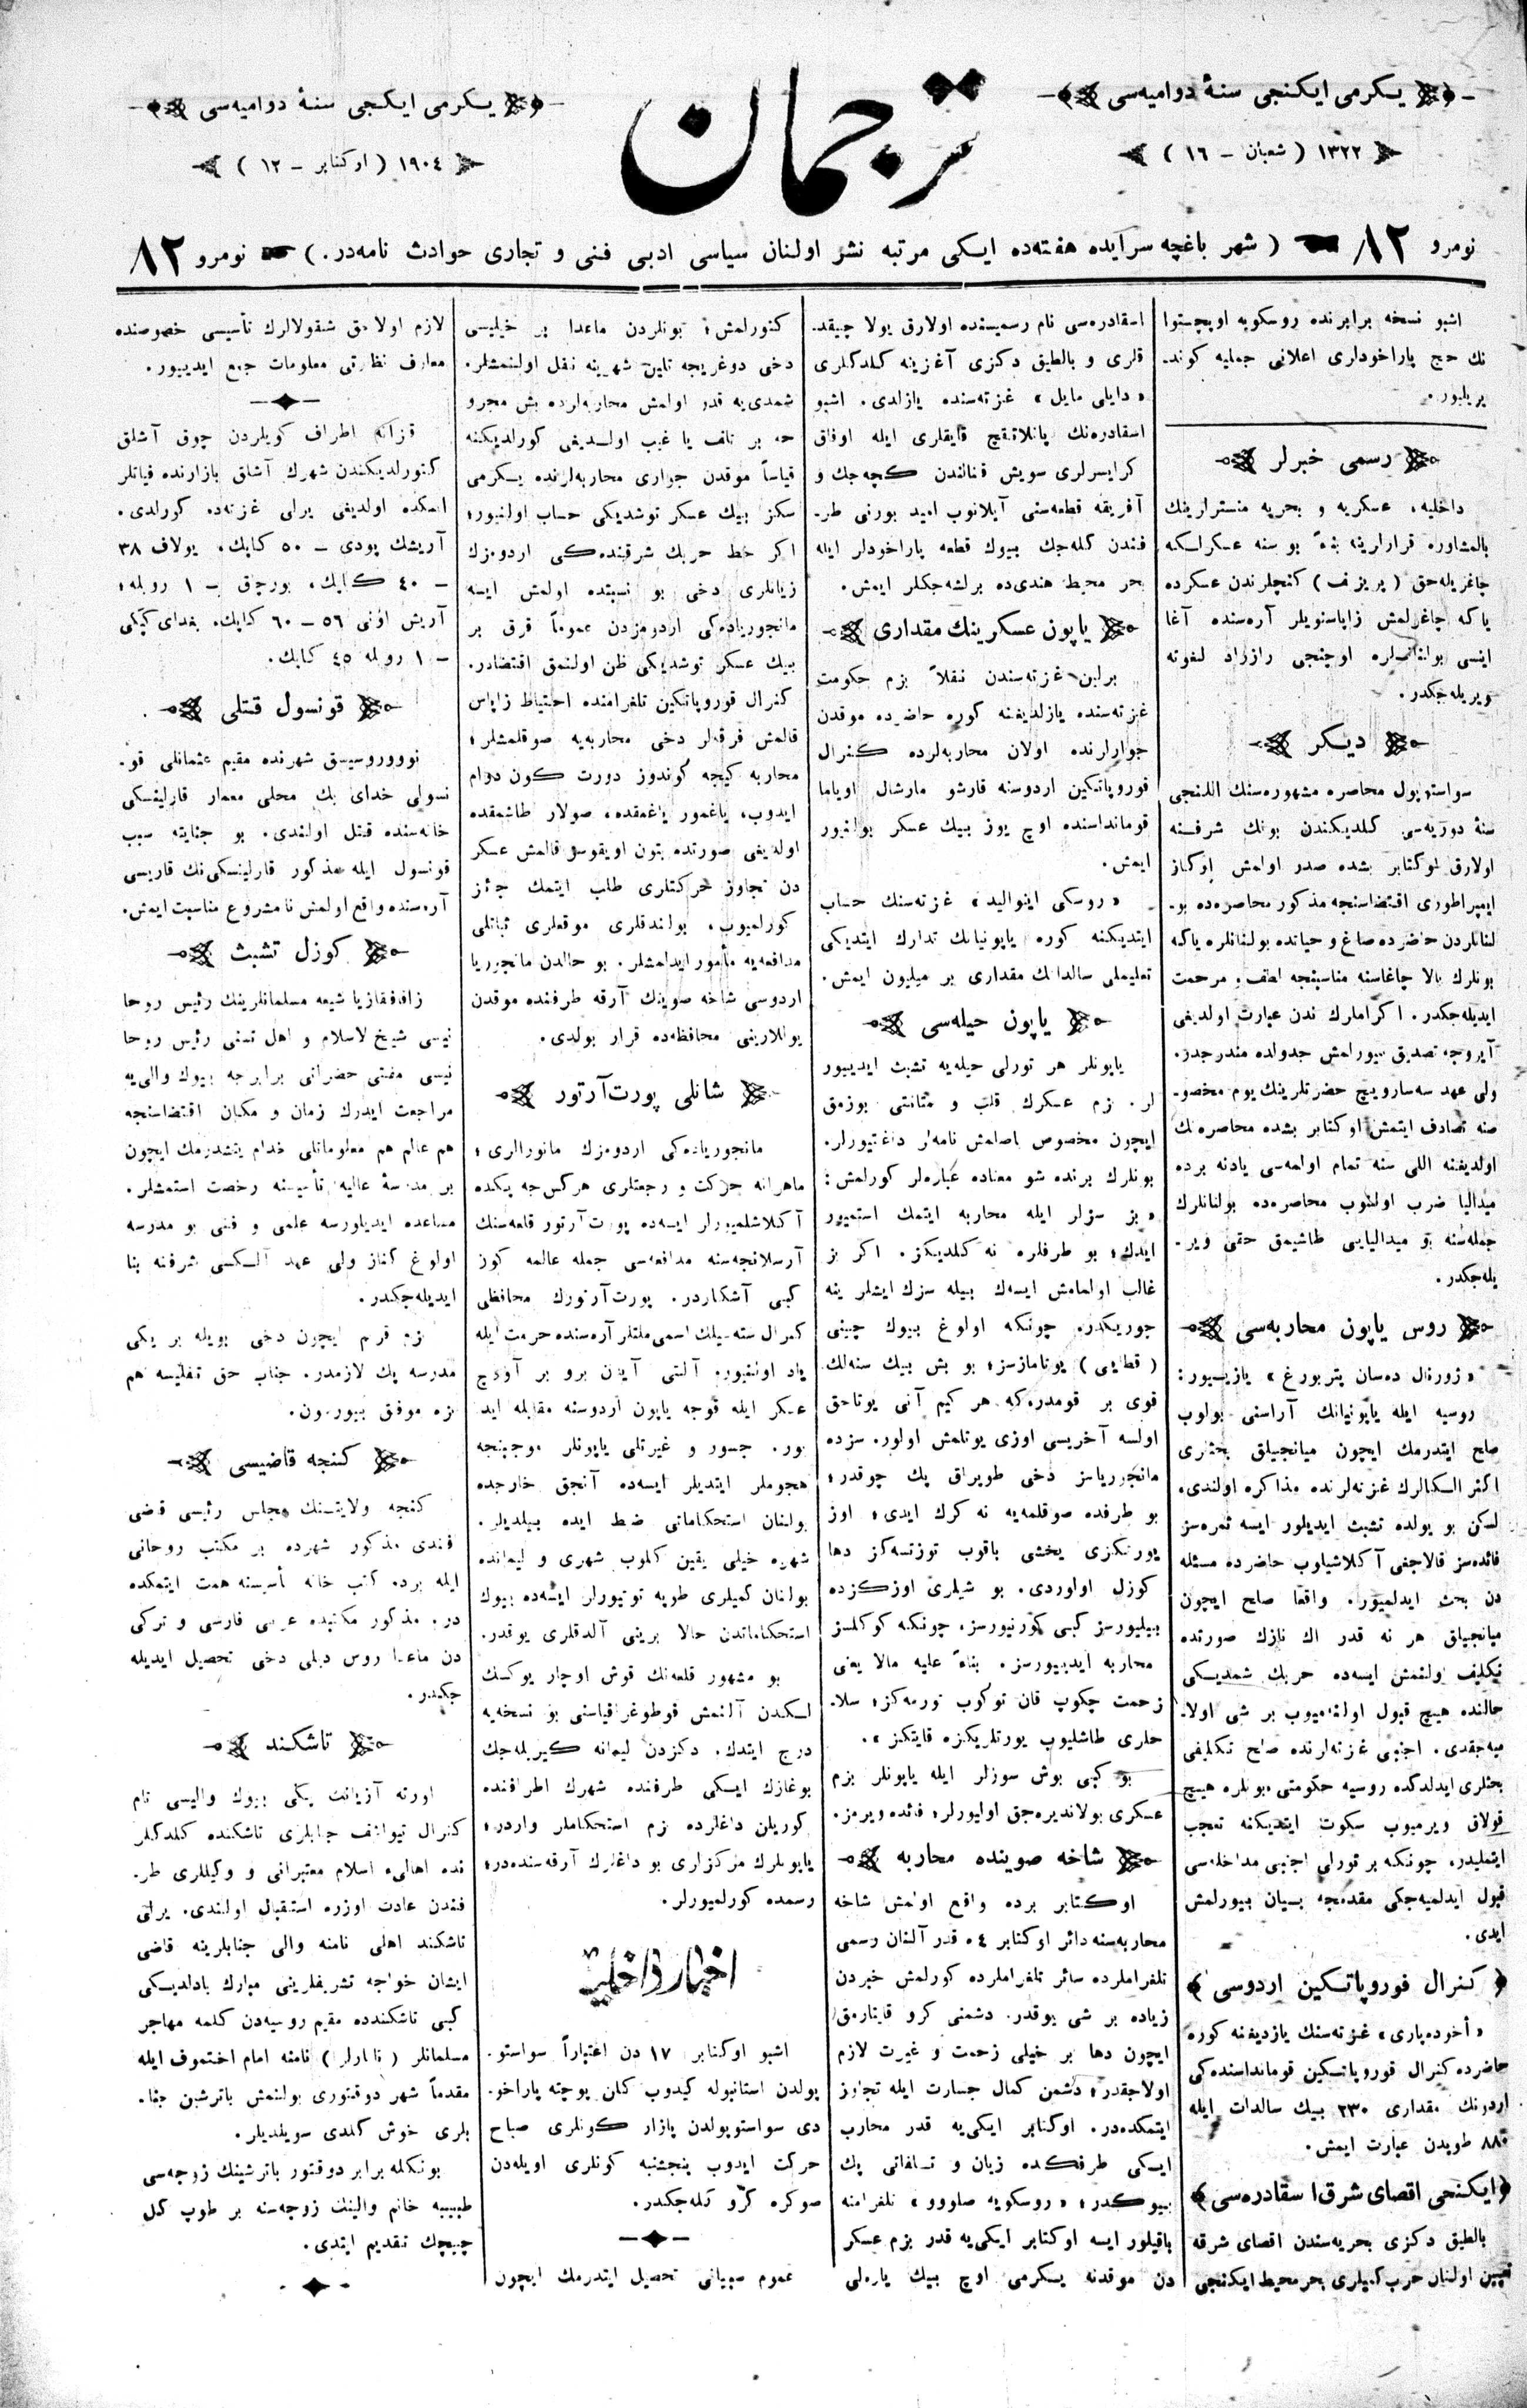 يكرمی ايكنجی سنۀ دواميه‌سی
١٣٢٢ ( شعبان - ١٦ )
ترجمان
يكرمی ايكنجی سنۀ دواميه‌سی
١٩٠٤ ( اوكتابر - ١٢ )
نومرو ٨٢ ( شهر باغچه سرايده هفته‌ده ايكی مرتبه نشر اولنان سياسی ادبی فنی و تجاری حوادث نامه‌در . ) نومرو ٨٢
اشبو نسخه برابرنده روسكويه اوبچستوا
نك حج پاراخوداری اعلانی جمليه كوند-
يريليور .
رسمی خبرلر
داخليه، عسكريه و بحريه منسترلرينك
بالمشاوره قرارلرينه بو سنه عسكرلكه
چاغريله‌جق ( پريزف ) كنجلرندن عسكرده
ياكه چاغرلمش زاپاسنويلر آره‌سنده آغا
اينيسی بولنانلره اوچنجی رازراد لغوته
ويريله‌جكدر .
ديكر
سواستوپول محاصره مشهوره‌سنك اللنجی
سنۀ دوريه‌سی كلديكندن بونك شرفنه
اولارق اوكتابر بشده صدر اولمش
ايمپراطوری اقتضاسنجه مذكور محاصره‌ده بو-
لنانلردن حاضرده صاغ و حياتده بولنانلره ياكه
بونلرك بالا چاغاسنه مناسبتجه لطف و مرحمت
ايديله‌جكدر . اكرامارك ندن عبارت اولديغی
آيروجه تصديق بيورلمش جدولده مندرجدر .
ولی عهد سه‌سارويچ حضرتلرينك يوم مخصو-
صنه تصادف ايتمش اوكتابر بشده محاصره‌نك
اولديغنه اللی سنه تمام اولمه‌سی يادنه برده
ميداليا ضرب اولنوب محاصره‌ده بولنانلرك
جمله‌سنه بو ميداليايی طاشيمق حقی وير-
يله‌جكدر .
روس ياپون محاربه‌سی
« ژورنال ده‌سان پتربورغ » يازييور :
روسيه ايله ياپونيانك آراسنی بولوب
صلح ايتدرمك ايچون ميانجيلق بحثلری
اكثر غزته‌لرنده مذاكره اولندی .
لكن بو يولده تشبث ايديلور ايسه ثمره‌سز
فائده‌سز قالاجغی آكلاشيلوب حاضرده مسئله
دن بحث ايدلميور . واقعا صلح ايچون
ميانجيلق هر نه قدر اك نازك صورتده
تكليف اولنمش ايسه‌ده حربك شمديكی
حالنده هيچ قبول اولنميوب بر شی اولا-
ميه‌جقدی . اجنبی غزته‌لرنده صلح تكليفی
بحثلری ايدلدكده روسيه حكومتی بونلره هيچ
قولاق ويرميوب سكوت ايتديكنه تعجب
ايتمليدر . چونكه بر تورلی اجنبی مداخله‌سی
قبول ايدلميه‌جكی مقدمجه بيان بيورلمش
ايدی .
كنرال قوروپاتكين اردوسی
« أخوده‌پاری » غزته‌سنك يازديغنه كوره
حاضرده كنرال قوروپاتكين قوماندا‌سنده‌كی
اردونك مقداری ٢٣٠ بيك سالدات ايله
٨٨٠ طوپدن عبارت ايمش .
ايكنجی اقصای شرق اسقادره‌سی
بالطيق دكزی بحريه‌سندن اقصای شرقه
تعيين اولنان حرب كميلری بحر محيط ايكنجی
اسقادره‌سی نام رسميسنده اولارق يولا چيقد-
قلری و بالطيق دكزی آغزينه كلدكلری
« دايلی مايل » غزته‌سنده يازلدی . اشبو
اسقادره‌نك پاتلاتقيچ قايقلری ايله اوفاق
كرايسرلری سويش قنالندن كچه‌جك و
آفريقه قطعه‌سنی آيلانوب اميد بورنی طر-
فندن كله‌جك بيوك قطعه پاراخودلر ايله
بحر محيط هندی‌ده برلشه‌جكلر ايمش .
ياپون عسكرينك مقداری
برلين غزته‌سندن نقلاً بزم حكومت
غزته‌سنده يازلديغنه كوره حاضرده موقدن
جوارلرنده اولان محاربه‌لرده كنرال
قوروپاتكين اردوسنه قارشو مارشال اوياما
قوماندا‌سنده اوچ يوز بيك عسكر بولنيور
ايمش .
« روسكی اينواليد » غزته‌سنك حساب
ايتديكنه كوره ياپونيانك تدارك ايتديكی
تعليملی سالداتك مقداری بر ميليون ايمش .
ياپون حيله‌سی
ياپونلر هر تورلی حيله‌يه تشبث ايدييور
لر . بزم عسكرك قلب و متانتی بوزمق
ايچون مخصوص باصلمش نامه‌لر داغتيورلر .
بونلرك برنده شو معناده عباره‌لر كورلمش :
« بز سزلر ايله محاربه ايتمك استميور
ايدك ؛ بو طرفلره نه كلديكز . اكر بز
غالب اولمامش ايسه‌ك بيله سزك ايشلر ينه
چوريكدر . چونكه اولوغ بيوك چينی
( قطايی ) يوتامازسز ؛ بو بش بيك سنه‌لك
قوی بر قومدر كه هر كيم آنی يوتاجق
اولسه آخريسی اوزی يوتلمش اولور . سزده
مانجورياسز دخی طوپراق پك چوقدر ؛
بو طرفده صوقلمه‌يه نه كرك ايدی ؛ اوز
يورتكزی يخشی باقوب توزتسه‌كز دها
كوزل اولوردی . بو شيلری اوزكزده
بيليورسز كبی كورنيورسز . چونكه كوكلسز
محاربه ايدييورسز . بناءً عليه مالا يعنی
زحمت چكوپ قان توكوب تورمه‌كز ؛ سلا-
حلری طاشليوب يورتلريكزه قايتكز » .
بو كبی بوش سوزلر ايله ياپونلر بزم
عسكری بولانديره‌جق اوليورلر ؛ فائده ويرمز .
شاخه صوينده محاربه
اوكتابر برده واقع اولمش شاخه
محاربه‌سنه دائر اوكتابر ٤ ه قدر آلنان رسمی
تلغراملرده سائر تلغراملرده كورلمش خبردن
زياده بر شی يوقدر . دشمنی كرو قايتارمق
ايچون دها بر خيلی زحمت و غيرت لازم
اولاجقدر ؛ دشمن كمال جسارت ايله تجاوز
ايتمكده‌در . اوكتابر ايكی‌يه قدر محارب
ايكی طرفكده زيان و تلفاتی پك
بيوكدر ؛ « روسكويه صلووو » تلغرامنه
باقيلور ايسه اوكتابر ايكی‌يه قدر بزم عسكر
دن موقدنه يكرمی اوچ بيك يارولی
كتورلمش ؛ بونلردن ماعدا بر خيليسی
دخی دوغريجه تلين شهرينه نقل اولنمشلر .
شمدی‌يه قدر اولمش محاربه‌لرده بش مجرو
حه بر تلف يا غيب اولديغی كورلديكنه
قياساً موقدن جواری محاربه‌لرنده يكرمی
سكز بيك عسكر توشديكی حساب اولنيور ؛
اكر خط حربك شرقنده‌كی اردومزك
زيانلری دخی بو نسبتده اولمش ايسه
مانجورياده‌كی اردومزدن عموماً قرق بر
بيك عسكر توشديكی ظن اولنمق اقتضادر .
كنرال قوروپاتكين تلغرامنده احتياط زاپاس
قالمش فرقه‌لر دخی محاربه‌يه صوقلمشلر ؛
محاربه كيجه كوندوز دورت كون دوام
ايدوب ، ياغمور ياغمقده ، صولار طاشمقده
اولديغی صورتده بتون اويقوسز قالمش عسكر
دن تجاوز حركتلری طلب ايتمك جائز
كورلميوب ، بولندقلری موقعلری ثباتلی
مدافعه‌يه مأمور ايدلمشلر . بو حالدن مانجوريا
اردوسی شاخه صوينك آرقه طرفنده موقدن
يوللارينی محافظه‌ده قرار بولدی .
شانلی پورت‌آرتور
مانجورياده‌كی اردومزك مانورالری ؛
ماهرانه حركت و رجعتلری هركس‌جه يكده
آكلاشلميورلر ايسه‌ده پورت‌آرتور قلعه‌سنك
آرسلانجه‌سنه مدافعه‌سی جمله عالمه كون
كبی آشكاردر . پورت‌آرتورك محافظی
كنرال سته‌سيلك اسمی ملتلر آره‌سنده حرمت ايله
ياد اولنيور . آلتی آيدن برو بر آووچ
عسكر ايله قوجه ياپون اردوسنه مقابله ايد
يور . جسور و غيرتلی ياپونلر
هجوملر ايتديلر ايسه‌ده آنجق خارجده
بولنان استحكاماتی ضبط ايده بيلديلر .
شهره خيلی يقين كلوب شهری و ليمانده
بولنان كميلری طوپه توتيورلر ايسه‌ده بيوك
استحكاماتدن حالا برينی آلدقلری يوقدر .
بو مشهور قلعه‌نك قوش اوچار يوكسك
لكدن آلنمش فوطوغرافياسنی بو نسخه‌يه
درج ايتدك . دكزدن ليمانه كيريله‌جك
بوغازك ايكی طرفنده شهرك اطرافنده
كوريلن داغلرده بزم استحكاملر واردر ؛
ياپونلرك مركزلری بو داغلرك آرقه‌سنده‌در ؛
رسمده كورلميورلر .
اخبار داخليه
اشبو اوكتابر ١٧ دن اعتباراً سواستو-
پولدن استانبوله كيدوب كلن پوچته پاراخو-
دی سواستوپولدن پازار كونلری صباح
حركت ايدوب پنجشنبه كونلری اويله‌دن
صوكره كرو كله‌جكدر .
عموم صبيانی تحصيل ايتدرمك ايچون
لازم اولاجق شقولالرك تأسيسی خصوصنده
معارف نظارتی معلومات جمع ايدييور .
قزانه اطراف كويلردن چوق آشلق
كتورلديكندن شهرك آشلق بازارنده فياتلر
ايتمكده اولديغی يرلی غزته‌ده كورلدی .
آريشك پودی - ٥٠ كاپك . يولاف ٣٨
- ٤٠ كاپك ، بورچق - ١ روبله ؛
آريش اونی ٥٦ - ٦٠ كاپك . بغدای كپكی
- ١ روبله ٤٥ كاپك .
قونسول قتلی
نووروسيسق شهرنده مقيم عثمانلی قو-
نسولی خدای بك محلی معمار قارلينسكی
خانه‌سنده قتل اولندی . بو جنايته سبب
قونسول ايله مذكور قارلينسكی‌نك قاريسی
آره‌سنده واقع اولمش نامشروع مناسبت ايمش .
كوزل تشبث
زاقافقازيا شيعه مسلمانلرينك رئيس روحا
نيسی شيخ الاسلام و اهل سنی رئيس روحا
نيسی مفتی حضراتی برابرجه بيوك والی‌يه
مراجعت ايدرك زمان و مكان اقتضاسنجه
هم عالم هم معلوماتلی خدام يتشدرمك ايچون
بر مدرسۀ عاليه تأسيسنه رخصت استمشلر .
مساعده ايديلورسه علمی و فنی بو مدرسه
اولوغ كناز ولی عهد آلكسی شرفنه بنا
ايديله‌جكدر .
بزم قرم ايچون دخی بويله بر يكی
مدرسه پك لازمدر . جناب حق تفليسه هم
بزه موفق بيورسون .
كنجه قاضيسی
كنجه ولايتنك مجلس رئيسی قاضی
افندی مذكور شهرده بر مكتب روحانی
ايله برده كتب خانه تأسيسنه همت ايتمكده
در . مذكور مكتبده عربی فارسی و تركی
دن ماعدا روس ديلی دخی تحصيل ايديله
جكدر .
تاشكند
اورته آزيانك يكی بيوك واليسی نام
كنرال تيواشف جنابلری تاشكنده كلدكلر
نده اهالیء اسلام معتبرانی و وكيللری طر-
فندن عادت اوزره استقبال اولندی . يرلی
تاشكند اهلی نامنه والی جنابلرينه قاضی
ايشان خواجه تشريفلرينی مبارك بادلديكی
كبی تاشكندده مقيم روسيه‌دن كلمه مهاجر
مسلمانلر ( تاتارلر ) نامنه امام اختموف ايله
مقدماً شهر دوقتوری بولنمش باترشين جنا-
بلری خوش كلدی سويلديلر .
بونكله برابر دوقتور باترشينك زوجه‌سی
طبيبه خانم والينك زوجه‌سنه بر طوپ كل
چيچك تقديم ايتدی .